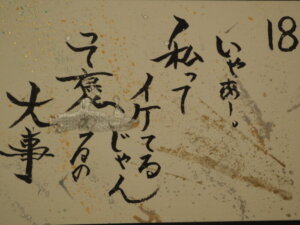 18
いやぁー。
私って
イケてるじゃん
って褒めるの
大事